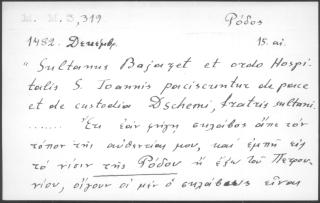 M. M. 3, 319 Ρόδος
1482. Δεκέμβρ. 15. αἰ.
"Sultanus Bajazet et ordo Hospi-
talis S. Joannis paciscuntur de pace
et de custodia Dschemi, fratris sultani.
....... Ἔτι ἐὰν φύγῃ σκλάβος ἀπὲ τὸν
τόπον τῆς αὐθεντίας μου, καὶ ἔμπῃ εἰς
τὸ νησὶν τῆς Ῥόδου ἢ ἔξω τοῦ Πετρου-
νίου, εἴγουν οἱ μὲν ὁ σκλάβος εἶναι